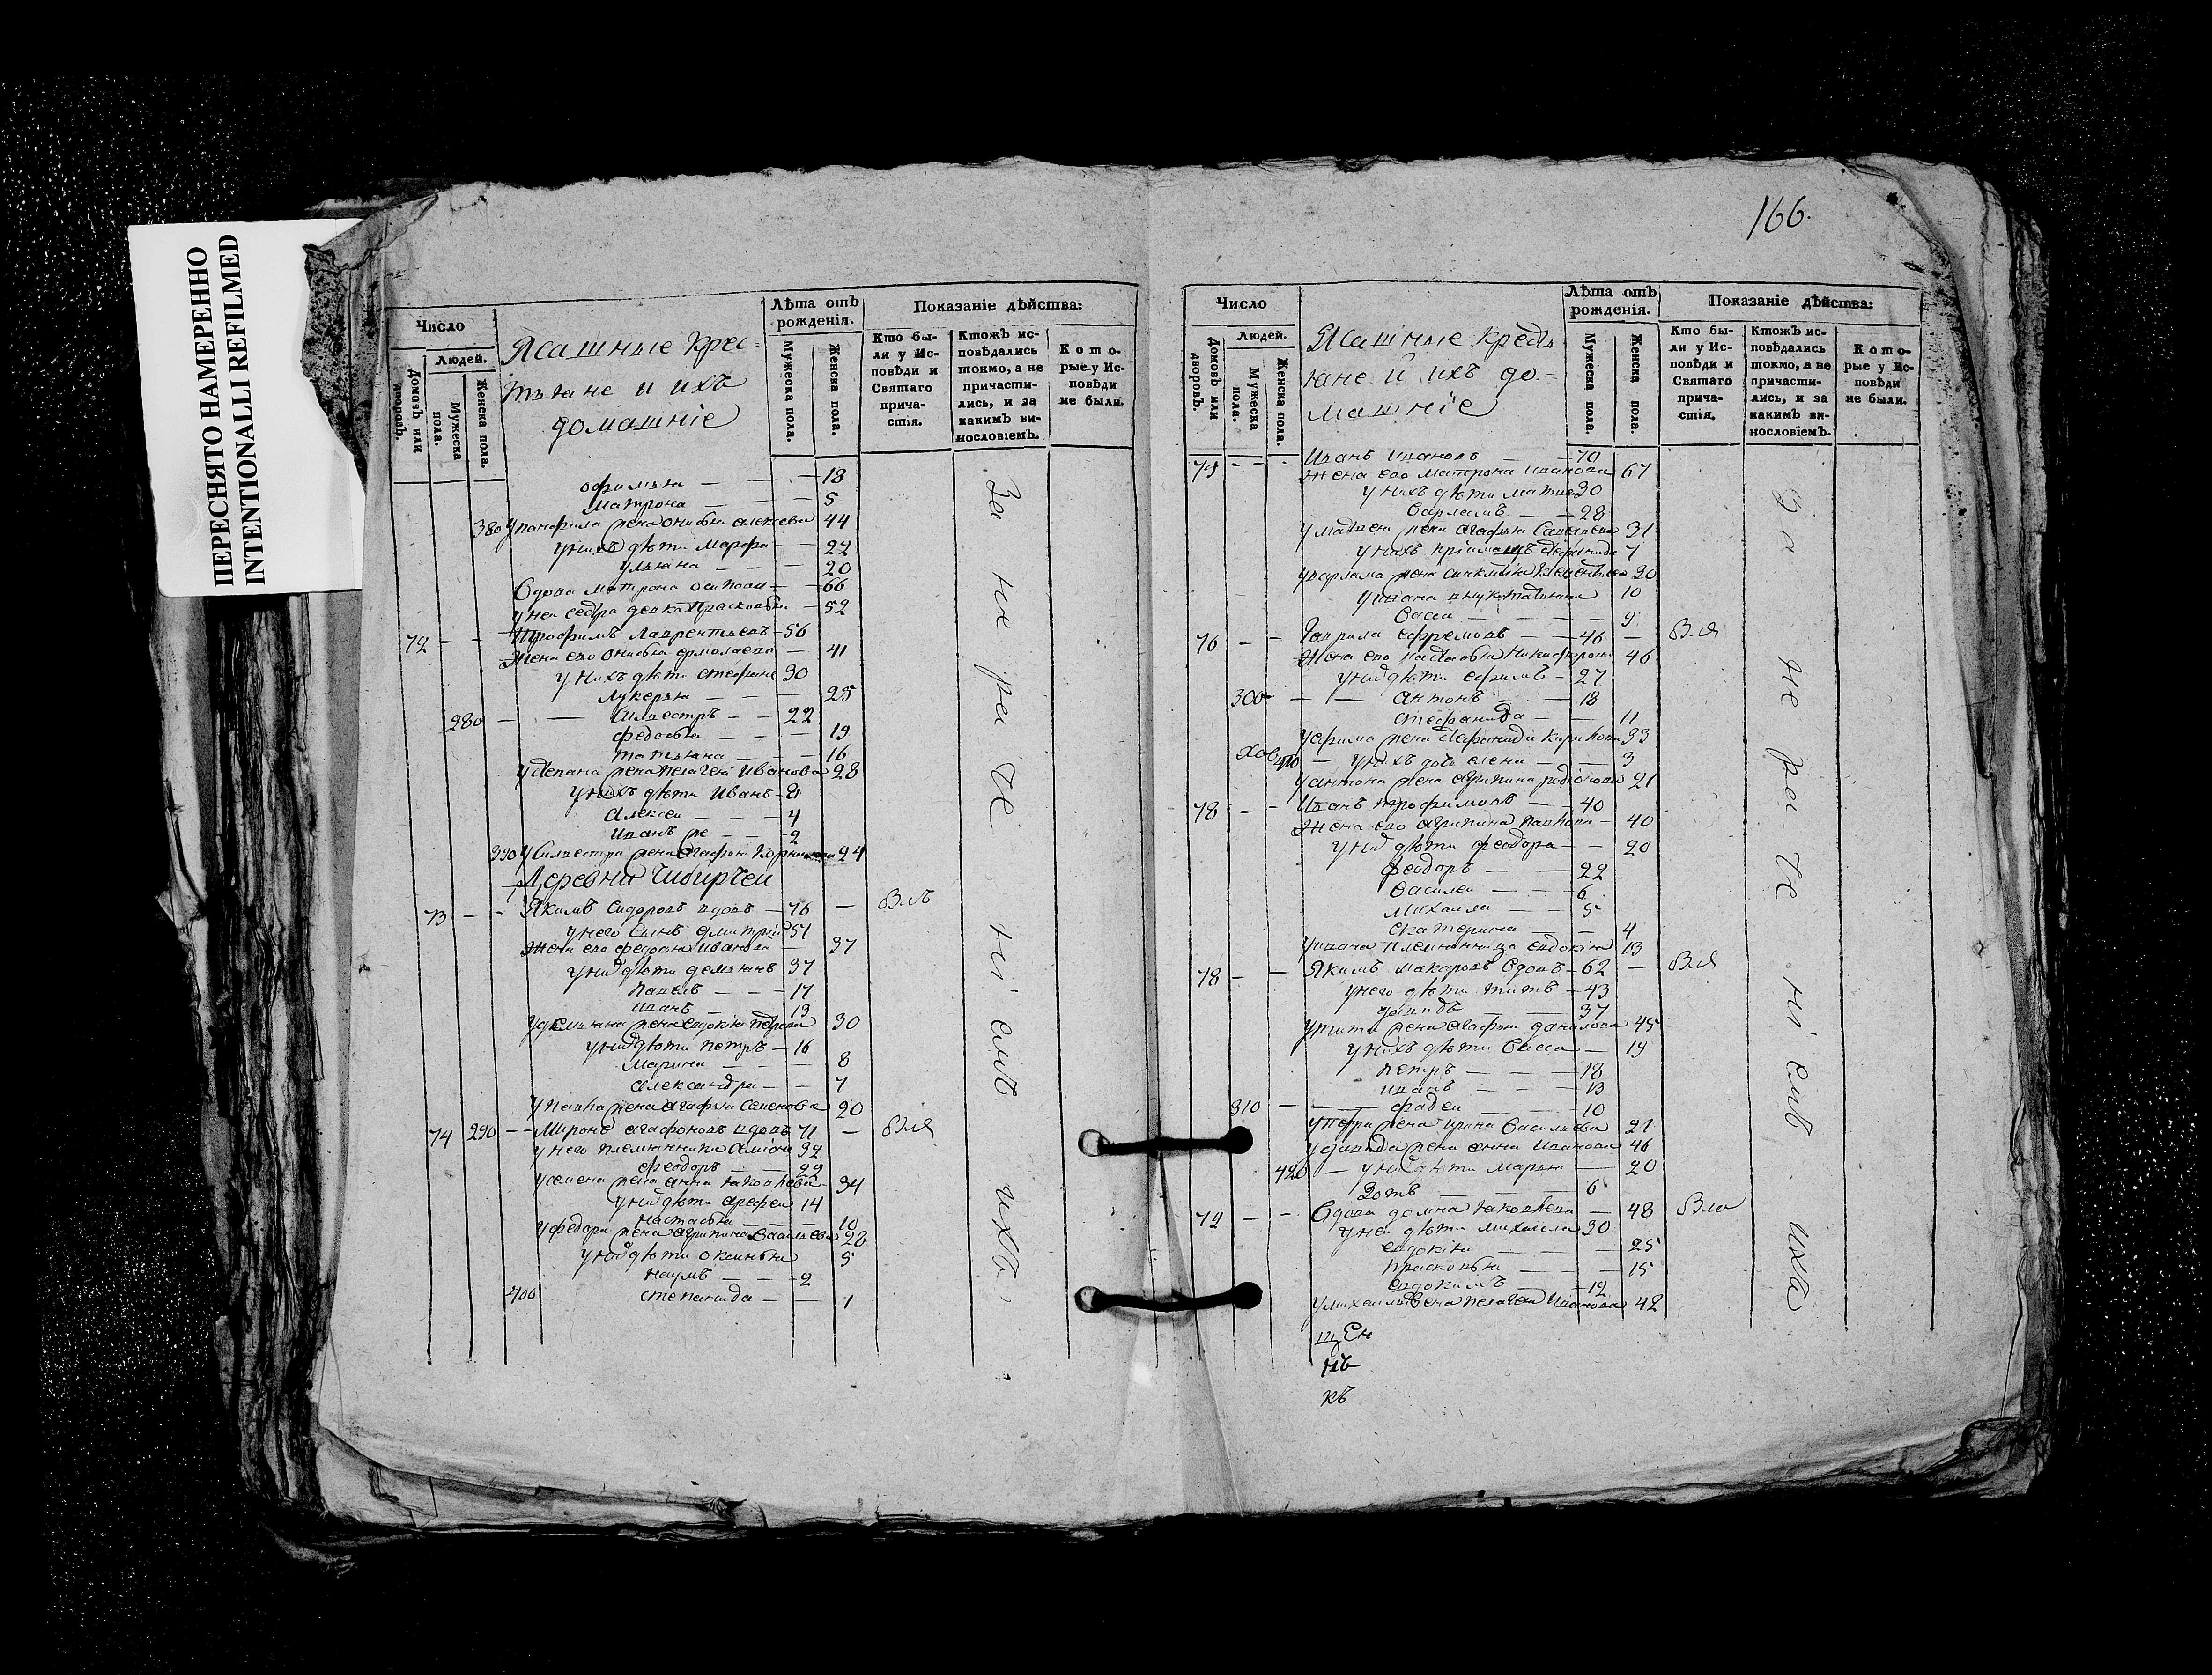 ПЕРЕСНЯТО НАМЕРЕННО
INTENTIONALLI REFILMED
Число
Людей.
Домовъ или дворовъ.
Мужеска пола.
Женска пола.
Ясашные крес-
тьяне и ихъ
домашніе
Лѣта отъ рожденія.
Мужеска пола.
Женска пола.
Показаніе дѣйства:
Кто бы-
ли у Ис-
повѣди и
Святаго
прича-
стія.
Ктожъ ис-
повѣдались
токмо, а не
причасти-
лись, и за
какимъ ви-
нословіемъ.
Кото-
рые у Ис-
повѣди
не были.
офимья — — 18
матрона — — 5
380 У панфила жена онисья алексева 44
у нихъ дѣти Марфа — 22
ульяна — — 20
Вдова матрона осипова — 66
у неи сестра девка Прасковья — 52
72 — — Трофимъ Лаврентьевъ — 56
Жена ево онисья ермолаева — 41
у нихъ дѣти стефанъ 30
лукерья — — 25
280 — — Силвестръ — — 22
федосья — — 19
татьяна — — 16
У степана жена пелагея Иванова 28
у нихъ дѣти Иванъ —
Алексеи — — 4
иванъ же — — 2
390 У Силвестра жена агафья 24
Деревни Чибирчеи
73 — — Яким Сидоровъ вдовъ — 76 —
у него сынъ дмитреи 51
Жена ево федосья Иванова — 37
у них дѣти демьянъ 37
павелъ — — 17
иванъ — 13
У демьяна жена евдокия петрова 30
у них дѣти петръ — 16
Марина — — 8
александра — — 7
У павла жена агафья семенова 20
74 290 — — Миронъ агафоновъ вдовъ 71 —
у него племянники 32
феодоръ — — 22
У семена жена анна яковлева 34
у них дѣти арефеи 14
настасья — — 10
У федора жена агрипина васильева 28
у них дѣти оксинья 5
наумъ — — 2
400 степанида — — 1
За не ра че ні емъ ихъ
166.
Число
Людей.
Домовъ или дворовъ.
Мужеска пола.
Женска пола.
Ясашные кресть
яне и ихъ до-
машніе
Лѣта отъ рожденія.
Мужеска пола.
Женска пола.
Показаніе дѣйства:
Кто бы-
ли у Ис-
повѣди и
Святаго
прича-
стія.
Ктожъ ис-
повѣдались
токмо, а не
причасти-
лись, и за
какимъ ви-
нословіемъ.
Кото-
рые у Ис-
повѣди
не были.
75 — — Иванъ ивановъ — — 70
Жена ево матрона иванова 67
у нихъ дѣти матвеи 30
варламъ — — 28
У матвея жена агафья 31
у нихъ 7
У варлама жена 20
У ивана внук татьяна 10
Васса — — 9
76 — — Гаврила ефремовъ — — 46 —
Жена ево настасья никифорова 46
у них дѣти ефимъ — 27
300 — — антонъ — 18
стефанида — — 11
У ефима жена стефанида 33
410 — у нихъ дочь елена — — 3
У антона жена агрипина родіонова 21
78 — — Иванъ трофимовъ — — 40
Жена ево агрипина павлова — 40
у них дѣти феодора — — 20
феодоръ — — 22
василеи — — 6
михаила — — 5
екатерина — — 4
У ивана племянница евдокія 13
78 — — Якимъ макаровъ вдовъ — 62 —
у него дѣти титъ — 43
давидъ — — 37
У тита жена агафья данилова 45
у нихъ дѣти васса — 19
петръ — — 18
иванъ — — 13
310 — — фадеи — — 10
У петра жена ирина васильева 21
У давида жена анна иванова 46
420 — у них дѣти марья — 20
Зотъ — — 6
79 — — Вдова домна яковлева — 48
у неи дѣти михаила 30
евдокія — — 25
прасковья — — 15
евдокимъ — — 12
У михаила жена пелагея Иванова 42
За не ра че ні емъ ихъ